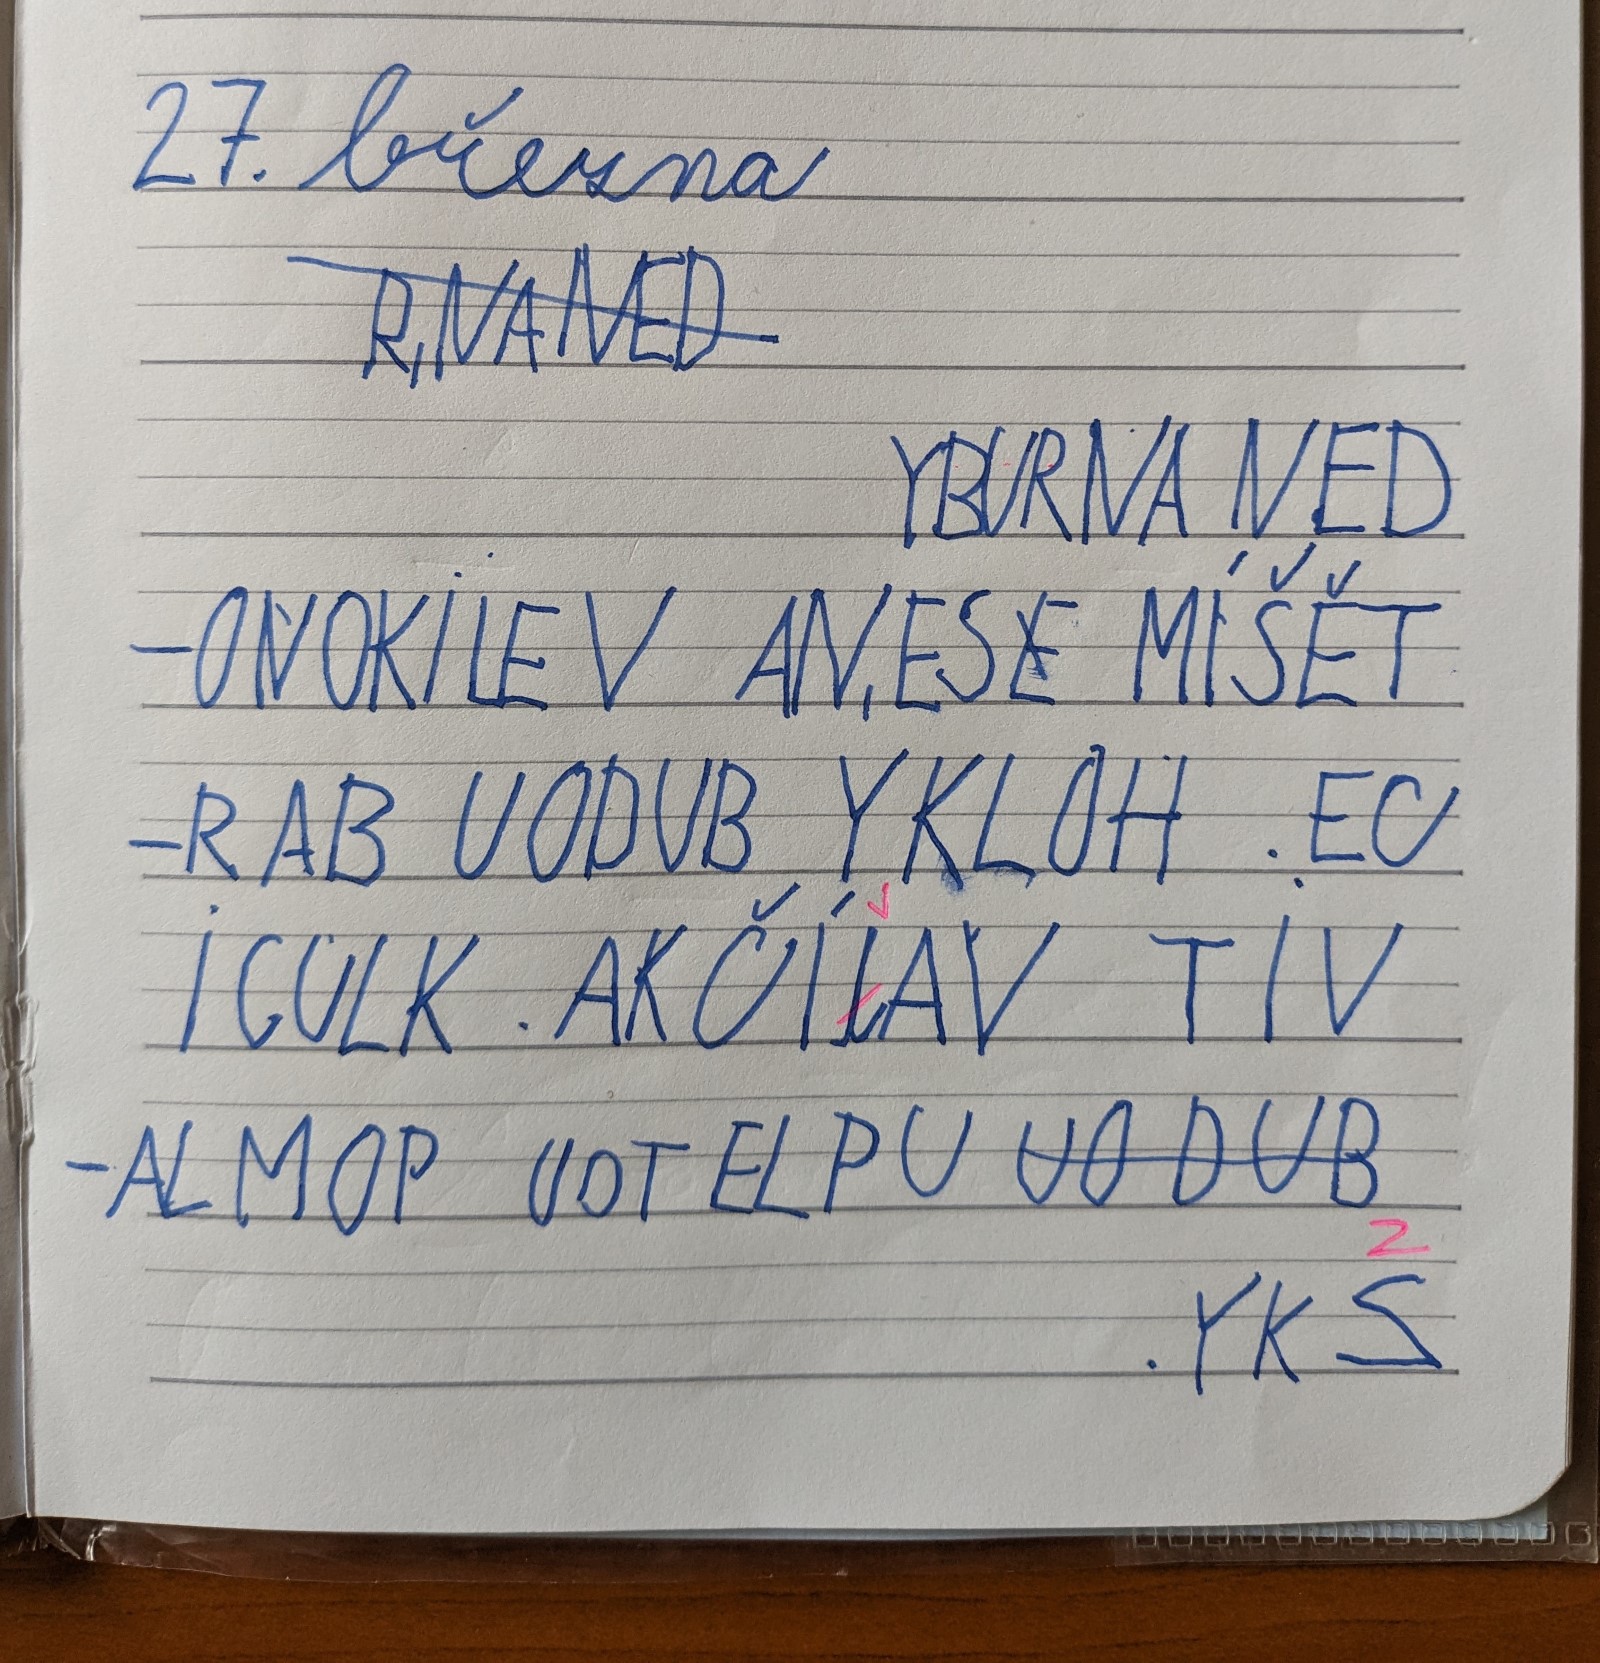 27. března
R,NANED
YBURNA NED
-ONVOKILEV AN,ESE MÍŠĚT
-RAB UODUB YKLOH . EC
ICULK . AKČÍLAV TIV
-ALMOP UOTELPU UODUB
2
.YKS